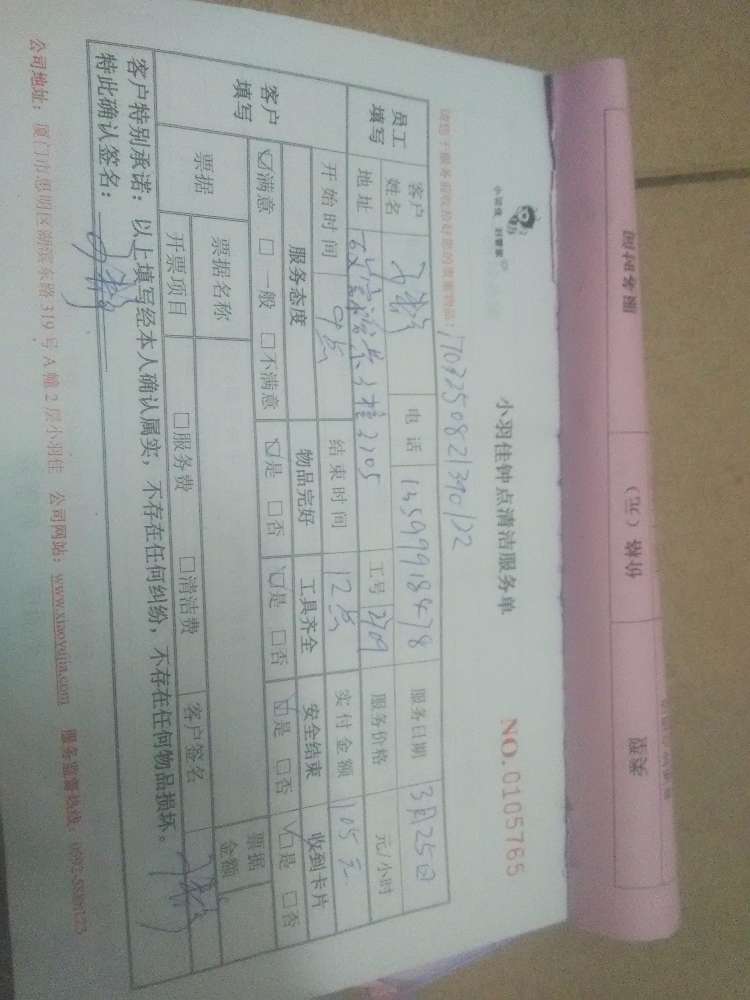 小羽佳钟点清洁服务单
NO.0105765
小羽佳 好管家
请您于服务前收拾好您的贵重物品:
员工填写 客户姓名 电话 13599918478 服务日期 3月25日
地址 工号 2109 服务价格 元/小时
开始时间 9点 结束时间 12点 实付金额 105元
客户填写 服务态度 物品完好 工具齐全 安全结束 收到卡片
☑满意 □一般 □不满意 ☑是 □否 ☑是 □否 ☑是 □否 ☑是 □否
票据 票据名称 票据金额
开票项目 □服务费 □清洁费 客户签名
客户特别承诺:以上填写经本人确认属实,不存在任何纠纷,不存在任何物品损坏。
特此确认签名:
公司地址:厦门市思明区湖滨东路319号A幢2层小羽佳 公司网站:www.xiaoyujia.com 服务监督热线:
服务时间 价格(元) 类型